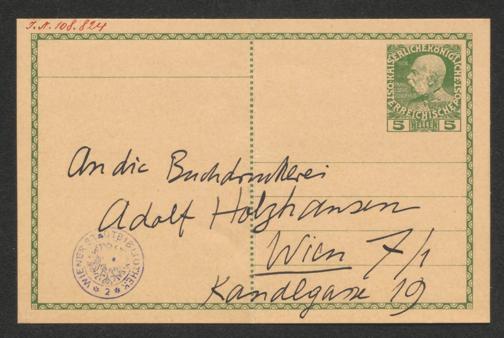 J.N. 108.824
KAISERLICHEKÖNIGLICHE
ÖSTERREICHISCHE POST
5 HELLER 5
An die Buchdruckerei
Adolf Holzhausen
Wien 7/1
Kandlgasse 19
WIENER STADTBIBLIOTHEK
* 2 *